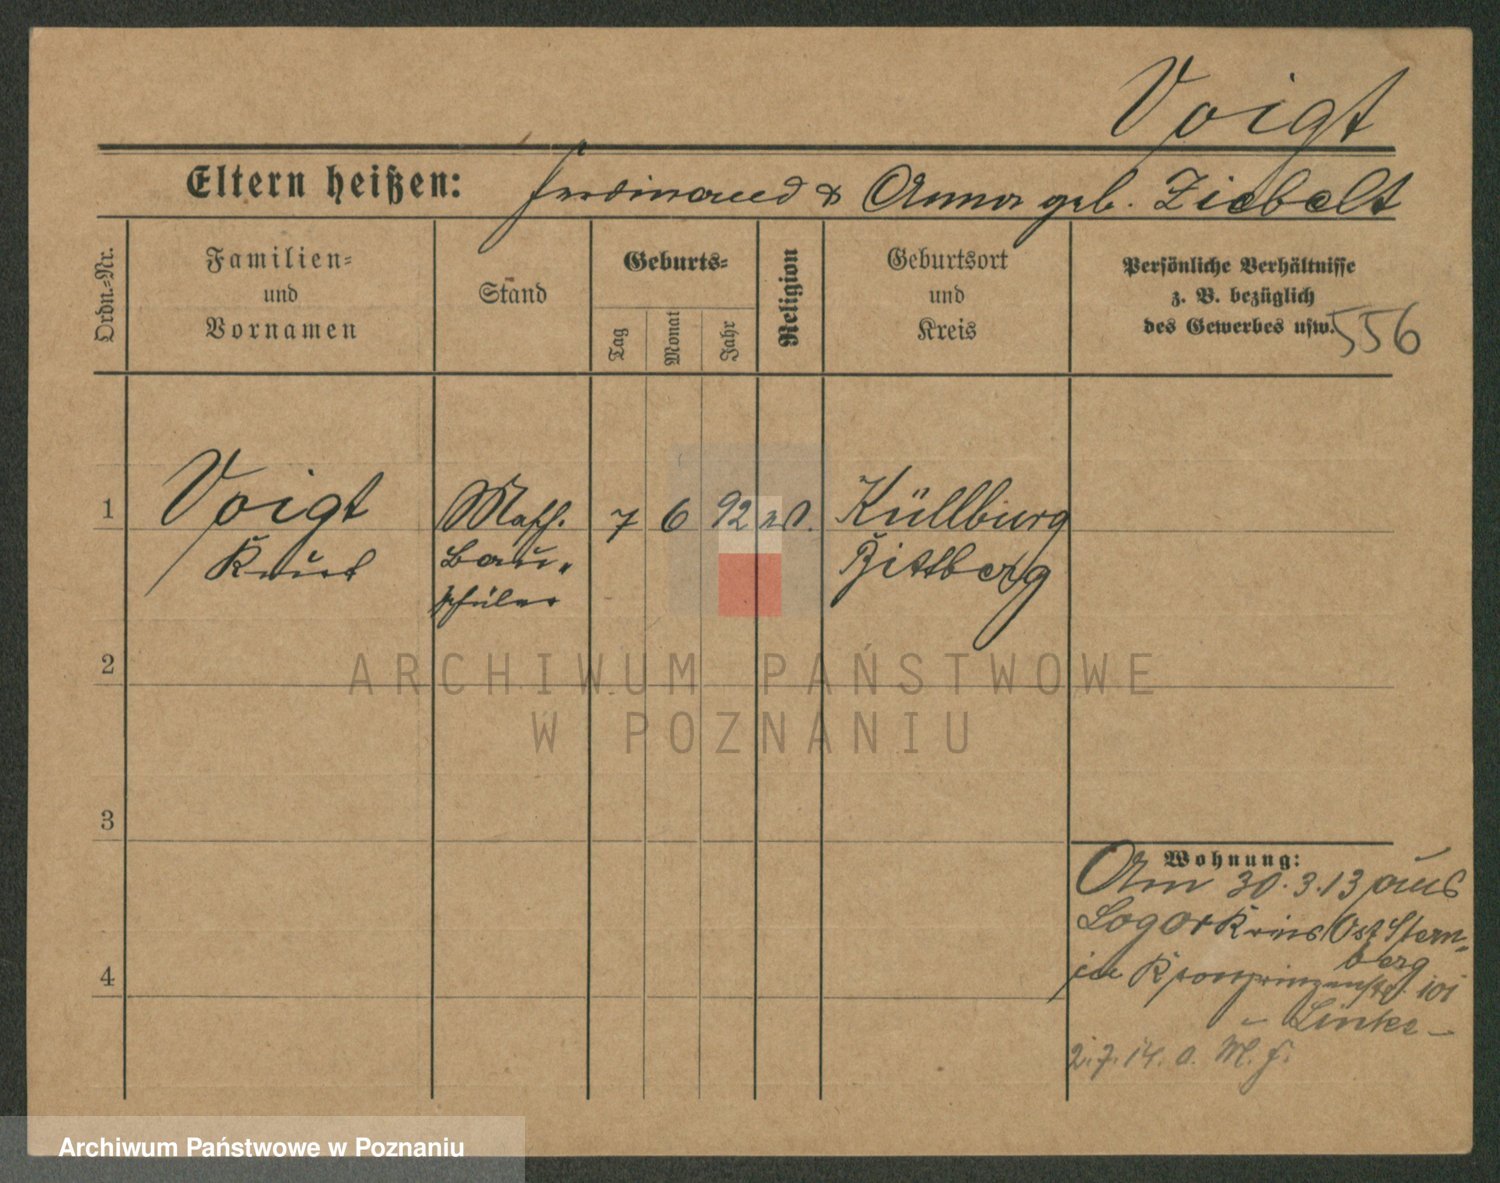 Voigt
Eltern heißen: Ferdinand & Anna geb. Ziebelt
Ordn.=Nr.
Familien=
und
Vornamen
Stand
Geburts=
Tag
Monat
Jahr
Religion
Geburtsort
und
Kreis
Persönliche Verhältnisse
z. B. bezüglich
des Gewerbes usw.
556
1
Voigt
Kurt
Masch.
Bau-
schüler
7
6
92
ev.
Küllburg
2
ARCHIWUM PAŃSTWOWE
W POZNANIU
3
Wohnung:
Am 30.3.13 aus
Kreis Ost Stern=
berg
in Kronprinzenstr. 101
- Linke -
2.7.14. a. M. f.
4
Archiwum Państwowe w Poznaniu